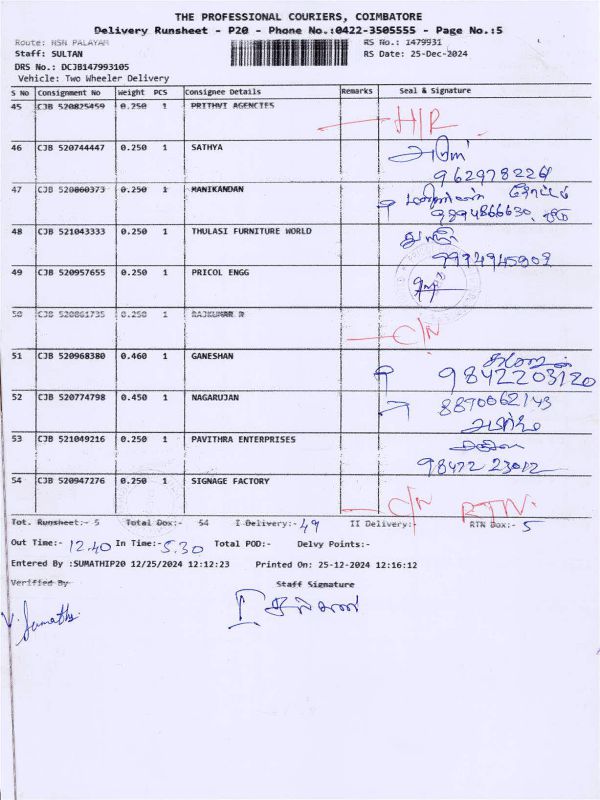 THE PROFESSIONAL COURIERS, COIMBATORE
Delivery Runsheet - P20 - Phone No.:0422-3505555 - Page No.:5
Route: NSN PALAYAM RS No.: 1479931
Staff: SULTAN RS Date: 25-Dec-2024
DRS No.: DCJB147993105
Vehicle: Two Wheeler Delivery
S No Consignment No Weight PCS Consignee Details Remarks Seal & Signature
45 CJB 520825459 0.250 1 PRITHVI AGENCIES H/R
46 CJB 520744447 0.250 1 SATHYA
47 CJB 520860373 0.250 1 MANIKANDAN
9894866630
48 CJB 521043333 0.250 1 THULASI FURNITURE WORLD
49 CJB 520957655 0.250 1 PRICOL ENGG
50 CJB 520861735 0.250 1 RAJKUMAR R C/N
51 CJB 520968380 0.460 1 GANESHAN
9842203120
52 CJB 520774798 0.450 1 NAGARUJAN 8870062143
53 CJB 521049216 0.250 1 PAVITHRA ENTERPRISES
98422 23012
54 CJB 520947276 0.250 1 SIGNAGE FACTORY C/N RTN.
Tot. Runsheet:- 5 Total Dox:- 54 I Delivery:- 49 II Delivery:- RTN Dox:- 5
Out Time:- 12.40 In Time:- 5.30 Total POD:- Delvy Points:-
Entered By :SUMATHIP20 12/25/2024 12:12:23 Printed On: 25-12-2024 12:16:12
Verified By Staff Signature
V. Sumathi